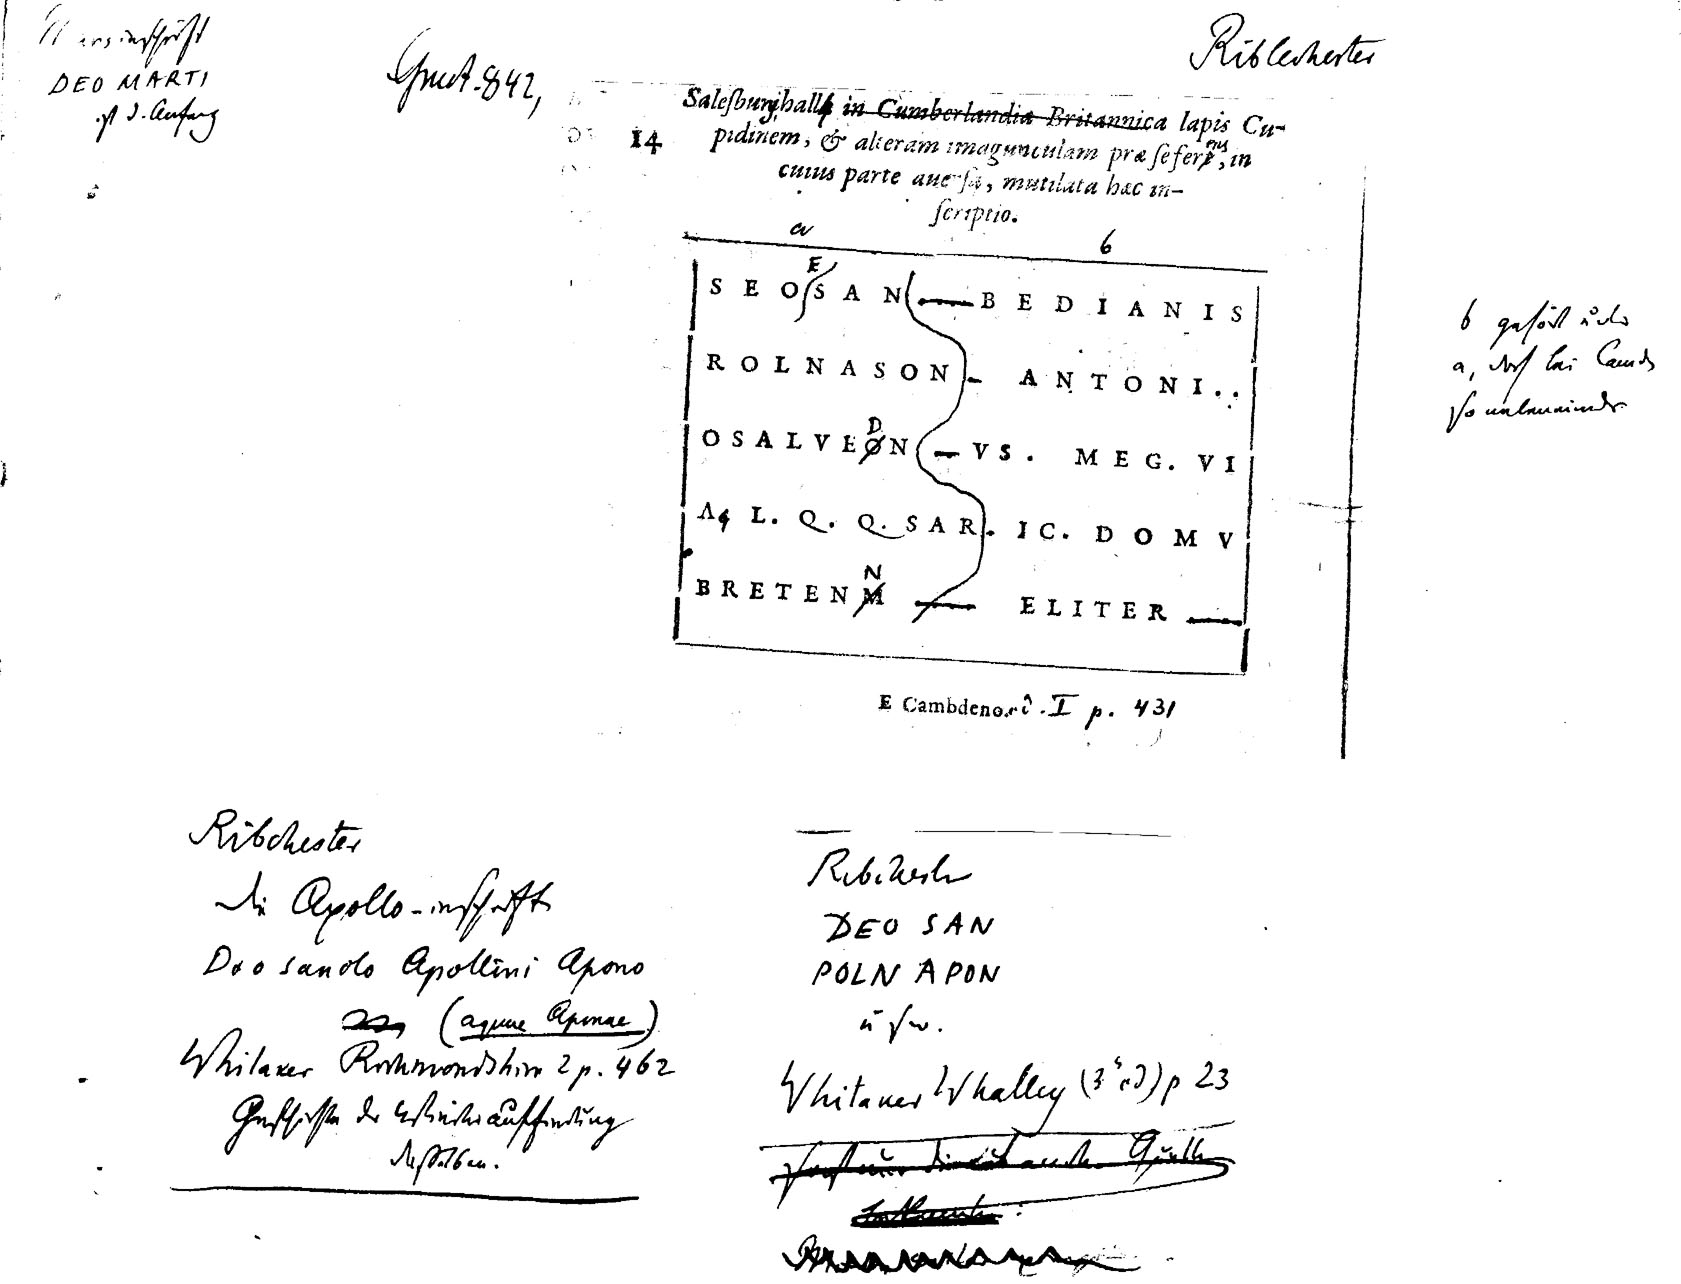 Marsinschrift
DEO MARTI
ist d. Anfang
Grut. 842,
Riblechester
Salesburyhall in Cumberlandia Britannica lapis Cu-
14 pidinem, & alteram imagunculam præ ferens, in
cuius parte auersa, mutilata hæc in-
scriptio.
a b
SEO E SAN — BEDIANIS
ROLNASON - ANTONI..
OSALVEØ D N — VS. MEG. VI
Λq L. Q. Q. SAR. IC. DOMV
BRETENM N — ELITER —
E Cambdeno. I p. 431
b gehört
a, doch bei Camd
so nebeneinander
Ribchester
die Apollo-inschrift
Deo sancto Apollini Apono
(aquae Aponae)
Whitaker Richmondshire 2 p. 462
Geschichte der Wiederauffindung
desselben.
Ribchester
DEO SAN
POLN APON
usw.
Whitaker Whalley (3 ed) p 23